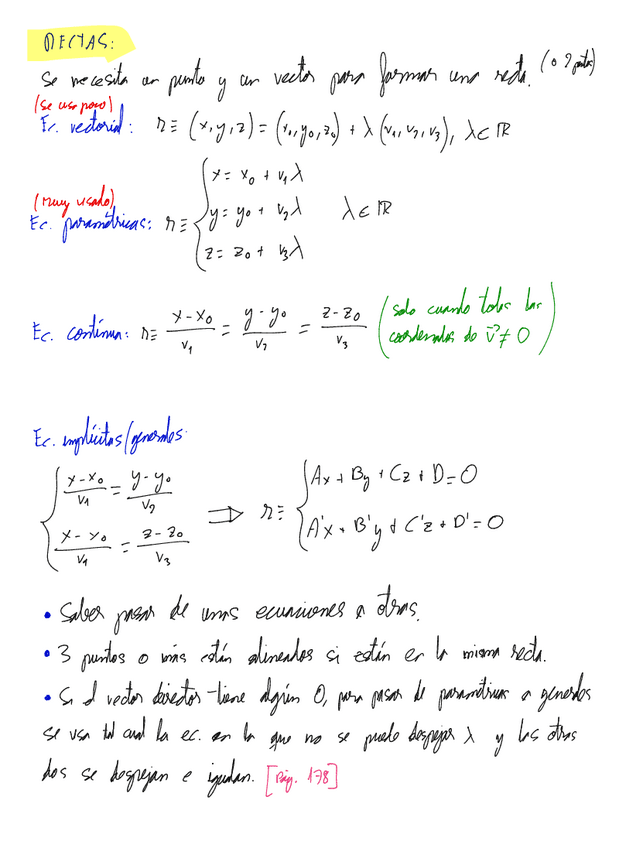 RECTAS:
Se necesita un punto y un vector para formar una recta. (o 2 puntos)
(Se usa poco)
Ec. vectorial: r ≡ (x, y, z) = (x₀, y₀, z₀) + λ (v₁, v₂, v₃), λ ∈ ℝ
x = x₀ + v₁λ
(Muy usado)
Ec. paramétricas: r ≡ { y = y₀ + v₂λ λ ∈ ℝ
z = z₀ + v₃λ
Ec. contínua: r ≡ (x - x₀)/v₁ = (y - y₀)/v₂ = (z - z₀)/v₃ (solo cuando todas las
coordenadas de v⃗ ≠ 0)
Ec. implícitas/generales
{ (x - x₀)/v₁ = (y - y₀)/v₂
(x - x₀)/v₁ = (z - z₀)/v₃ ⇒ r ≡ { Ax + By + Cz + D = 0
A'x + B'y + C'z + D' = 0
• Saber pasar de unas ecuaciones a otras.
• 3 puntos o más están alineados si están en la misma recta.
• Si el vector director tiene algún 0, para pasar de paramétricas a generales
se usa tal cual la ec. en la que no se puede despejar λ y las otras
dos se despejan e igualan. [Pág. 178]